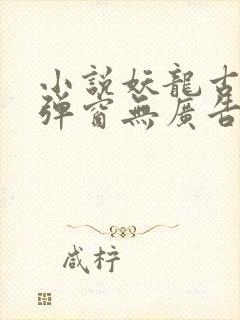 小說妖龍古
彈窗無廣告
咸柠